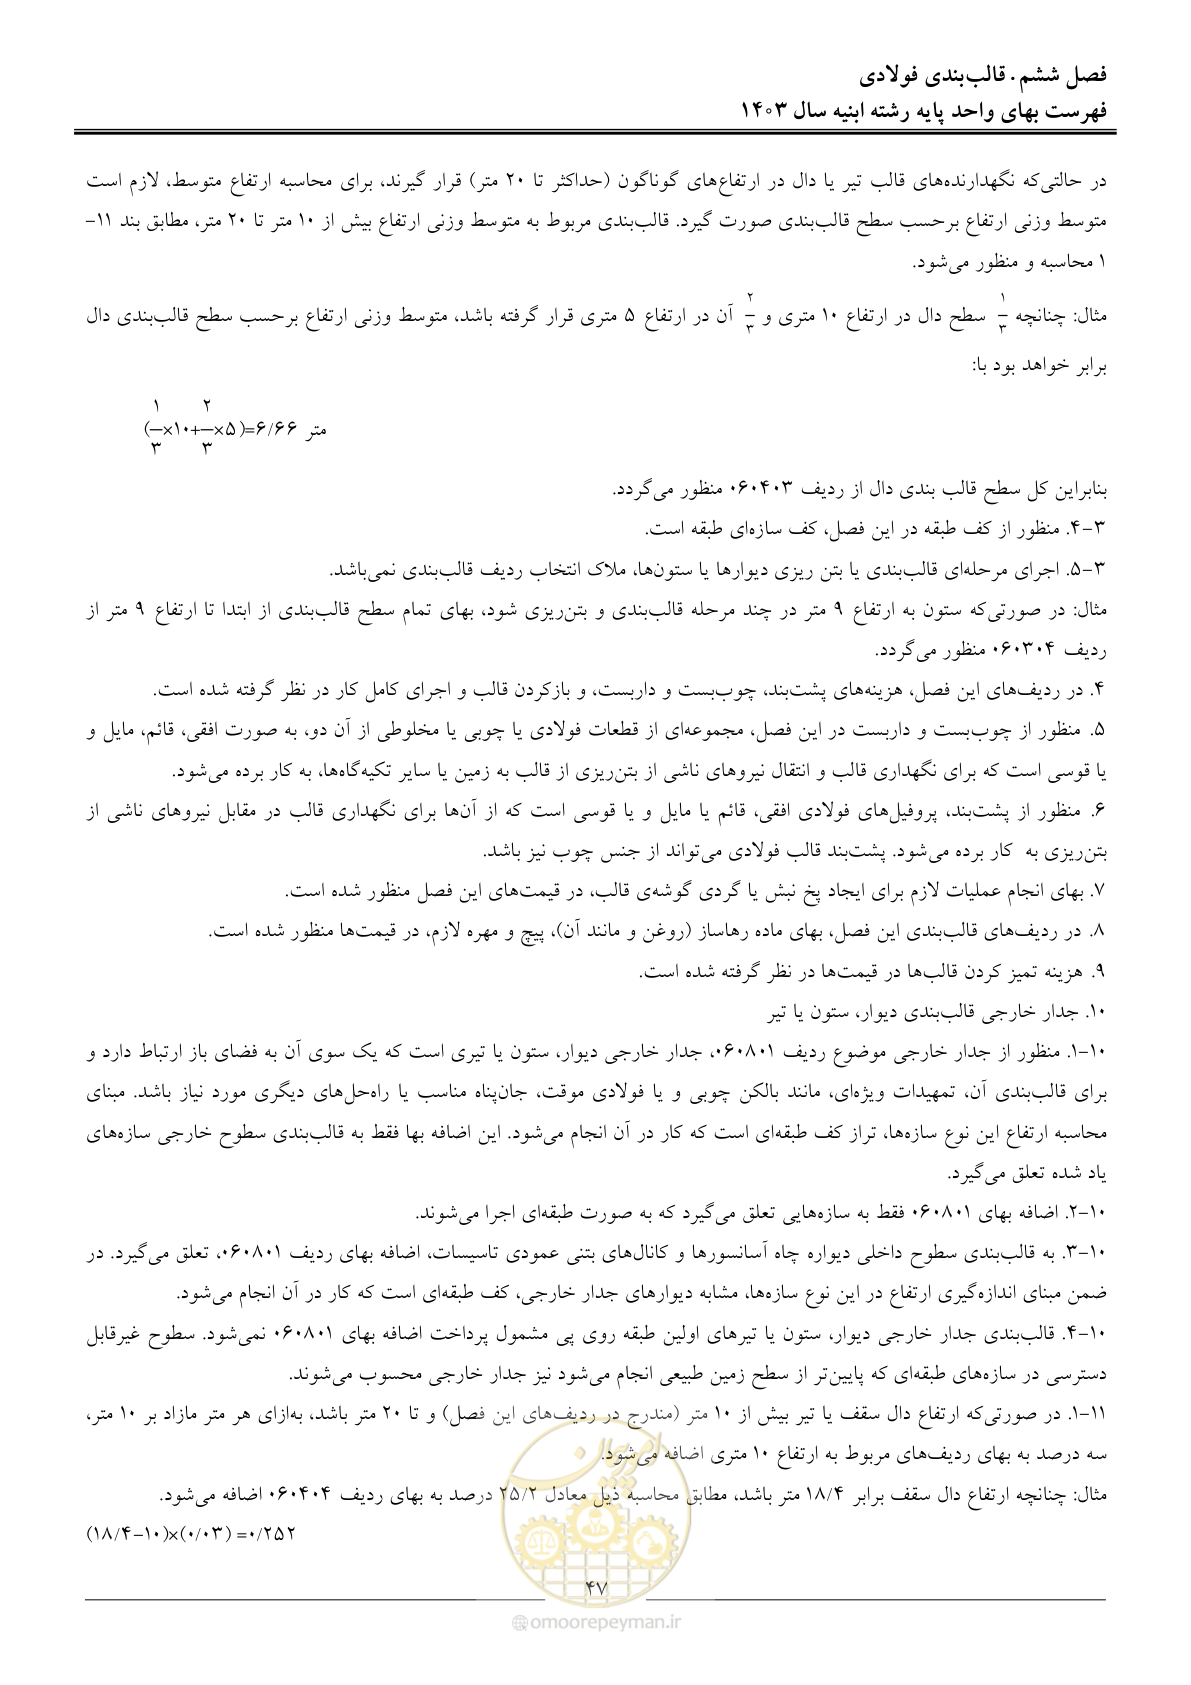 فصل ششم. قالب‌بندی فولادی
فهرست بهای واحد پایه رشته ابنیه سال ۱۴۰۳
در حالتی‌که نگهدارنده‌های قالب تیر یا دال در ارتفاع‌های گوناگون (حداکثر تا ۲۰ متر) قرار گیرند، برای محاسبه ارتفاع متوسط، لازم است
متوسط وزنی ارتفاع برحسب سطح قالب‌بندی صورت گیرد. قالب‌بندی مربوط به متوسط وزنی ارتفاع بیش از ۱۰ متر تا ۲۰ متر، مطابق بند ۱۱-
۱ محاسبه و منظور می‌شود.
مثال: چنانچه ۱/۳ سطح دال در ارتفاع ۱۰ متری و ۲/۳ آن در ارتفاع ۵ متری قرار گرفته باشد، متوسط وزنی ارتفاع برحسب سطح قالب‌بندی دال
برابر خواهد بود با:
(۱/۳×۱۰+۲/۳×۵)=۶/۶۶ متر
بنابراین کل سطح قالب بندی دال از ردیف ۰۶۰۴۰۳ منظور می‌گردد.
۳-۴. منظور از کف طبقه در این فصل، کف سازه‌ای طبقه است.
۳-۵. اجرای مرحله‌ای قالب‌بندی یا بتن ریزی دیوارها یا ستون‌ها، ملاک انتخاب ردیف قالب‌بندی نمی‌باشد.
مثال: در صورتی‌که ستون به ارتفاع ۹ متر در چند مرحله قالب‌بندی و بتن‌ریزی شود، بهای تمام سطح قالب‌بندی از ابتدا تا ارتفاع ۹ متر از
ردیف ۰۶۰۳۰۴ منظور می‌گردد.
۴. در ردیف‌های این فصل، هزینه‌های پشت‌بند، چوب‌بست و داربست، و بازکردن قالب و اجرای کامل کار در نظر گرفته شده است.
۵. منظور از چوب‌بست و داربست در این فصل، مجموعه‌ای از قطعات فولادی یا چوبی یا مخلوطی از آن دو، به صورت افقی، قائم، مایل و
یا قوسی است که برای نگهداری قالب و انتقال نیروهای ناشی از بتن‌ریزی از قالب به زمین یا سایر تکیه‌گاه‌ها، به کار برده می‌شود.
۶. منظور از پشت‌بند، پروفیل‌های فولادی افقی، قائم یا مایل و یا قوسی است که از آن‌ها برای نگهداری قالب در مقابل نیروهای ناشی از
بتن‌ریزی به کار برده می‌شود. پشت‌بند قالب فولادی می‌تواند از جنس چوب نیز باشد.
۷. بهای انجام عملیات لازم برای ایجاد پخ نبش یا گردی گوشه‌ی قالب، در قیمت‌های این فصل منظور شده است.
۸. در ردیف‌های قالب‌بندی این فصل، بهای ماده رهاساز (روغن و مانند آن)، پیچ و مهره لازم، در قیمت‌ها منظور شده است.
۹. هزینه تمیز کردن قالب‌ها در قیمت‌ها در نظر گرفته شده است.
۱۰. جدار خارجی قالب‌بندی دیوار، ستون یا تیر
۱۰-۱. منظور از جدار خارجی موضوع ردیف ۰۶۰۸۰۱، جدار خارجی دیوار، ستون یا تیری است که یک سوی آن به فضای باز ارتباط دارد و
برای قالب‌بندی آن، تمهیدات ویژه‌ای، مانند بالکن چوبی و یا فولادی موقت، جان‌پناه مناسب یا راه‌حل‌های دیگری مورد نیاز باشد. مبنای
محاسبه ارتفاع این نوع سازه‌ها، تراز کف طبقه‌ای است که کار در آن انجام می‌شود. این اضافه بها فقط به قالب‌بندی سطوح خارجی سازه‌های
یاد شده تعلق می‌گیرد.
۱۰-۲. اضافه بهای ۰۶۰۸۰۱ فقط به سازه‌هایی تعلق می‌گیرد که به صورت طبقه‌ای اجرا می‌شوند.
۱۰-۳. به قالب‌بندی سطوح داخلی دیواره چاه آسانسورها و کانال‌های بتنی عمودی تاسیسات، اضافه بهای ردیف ۰۶۰۸۰۱، تعلق می‌گیرد. در
ضمن مبنای اندازه‌گیری ارتفاع در این نوع سازه‌ها، مشابه دیوارهای جدار خارجی، کف طبقه‌ای است که کار در آن انجام می‌شود.
۱۰-۴. قالب‌بندی جدار خارجی دیوار، ستون یا تیرهای اولین طبقه روی پی مشمول پرداخت اضافه بهای ۰۶۰۸۰۱ نمی‌شود. سطوح غیرقابل
دسترسی در سازه‌های طبقه‌ای که پایین‌تر از سطح زمین طبیعی انجام می‌شود نیز جدار خارجی محسوب می‌شوند.
۱۱-۱. در صورتی‌که ارتفاع دال سقف یا تیر بیش از ۱۰ متر (مندرج در ردیف‌های این فصل) و تا ۲۰ متر باشد، به‌ازای هر متر مازاد بر ۱۰ متر،
سه درصد به بهای ردیف‌های مربوط به ارتفاع ۱۰ متری اضافه می‌شود.
مثال: چنانچه ارتفاع دال سقف برابر ۱۸/۴ متر باشد، مطابق محاسبه ذیل معادل ۲۵/۲ درصد به بهای ردیف ۰۶۰۴۰۴ اضافه می‌شود.
(۱۸/۴-۱۰)×(۰/۰۳) =۰/۲۵۲
امور پیمان
۴۷
omoorepeyman.ir